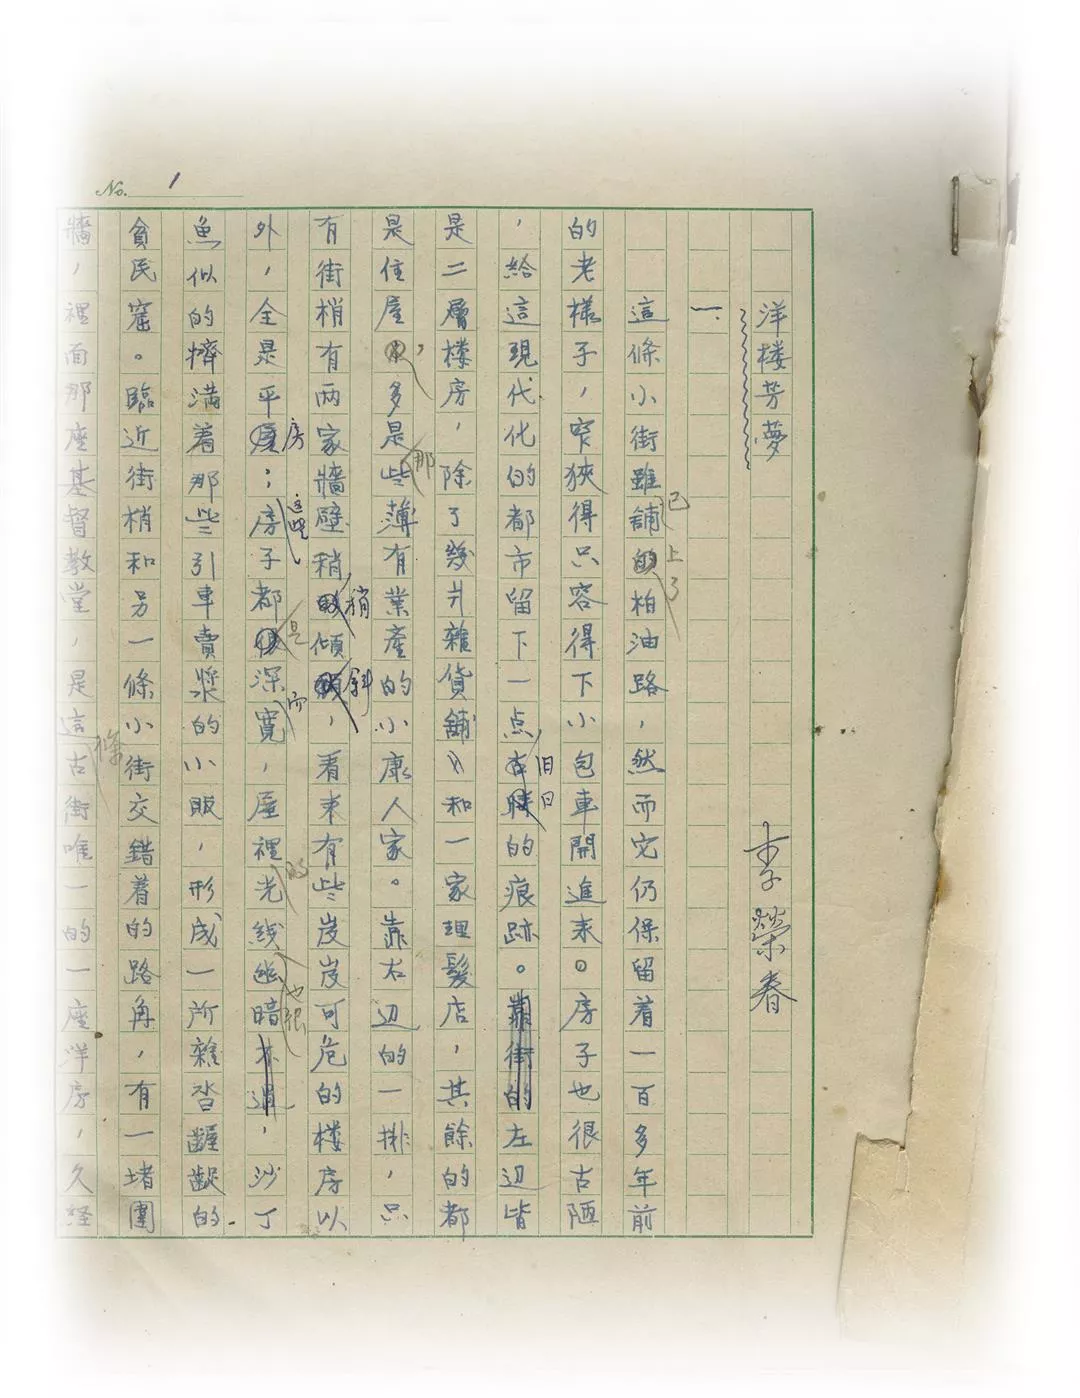 No. 1
洋楼芳夢
李榮春
一.
這條小街雖已舖上了柏油路，然而它仍保留着一百多年前
的老樣子，窄狹得只容得下小包車開進来。房子也很古陋
，給這現代化的都市留下一点旧日的痕跡。左辺皆
是二層楼房，除了幾爿雜貨舖和一家理髮店，其餘的都
是住屋，多是那些薄有業產的小康人家。靠右辺的一排，只
有街梢有两家牆壁稍稍傾斜，看来有些岌岌可危的楼房以
外，全是平房；這些房子都是深而寬，屋裡的光线也很幽暗，沙丁
魚似的擠満着那些引車賣漿的小販，形成一所雜沓齷齪的
貧民窟。臨近街梢和另一條小街交錯着的路角，有一堵圍
牆，裡面那座基督教堂，是這條古街唯一的一座洋房，久経